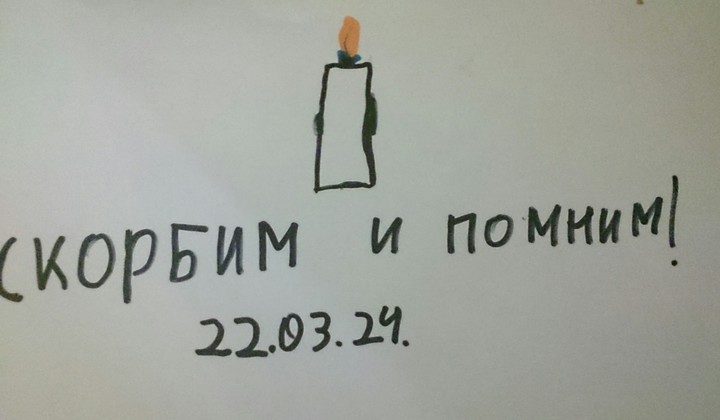 скорбим и помним!
22.03.24.